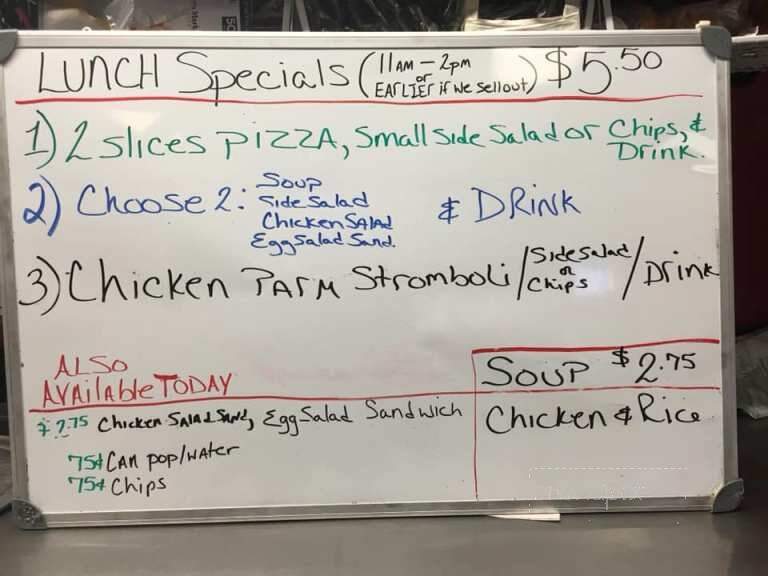 LUNCH Specials (11AM - 2pm or EARLIER if we sellout) $5.50
1) 2 slices PIZZA, Small Side Salad or Chips, & Drink.
2) Choose 2: Soup
Side Salad
Chicken SALAD
Egg Salad Sand.
& DRINK
3) Chicken PARM Stromboli / Side Salad or Chips / Drink
ALSO
AVAilable TODAY
$2.75 Chicken SALAD SAND, Egg Salad Sandwich
75¢ CAN pop/water
75¢ Chips
SOUP $2.75
Chicken & Rice